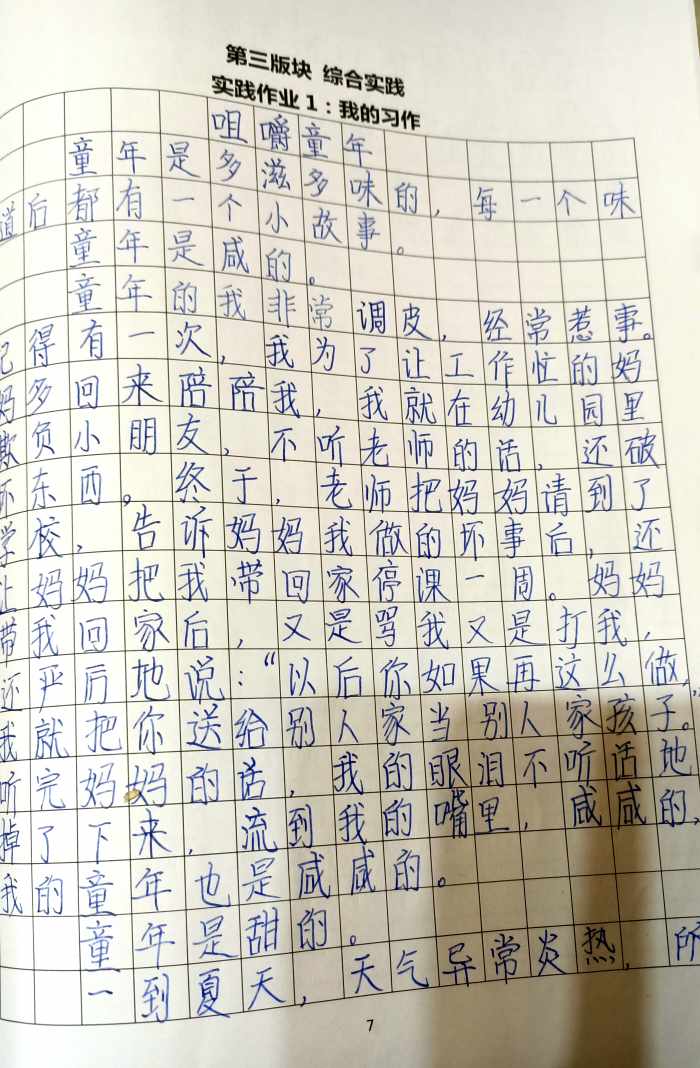 第三版块 综合实践
实践作业1：我的习作
咀嚼童年
童年是多滋多味的，每一个味
道后都有一个小故事。
童年是咸的。
童年的我非常调皮，经常惹事。
记得有一次，我为了让工作忙的妈
妈多回来陪陪我，我就在幼儿园里
欺负小朋友，不听老师的话，还破
坏东西。终于，老师把妈妈请到了
学校，告诉妈妈我做的坏事后，还
让妈妈把我带回家停课一周。妈妈
带我回家后，又是骂我又是打我，
还严厉地说：“以后你如果再这么做，
我就把你送给别人家当别人家孩子。
听完妈妈的话，我的眼泪不听话地
掉了下来，流到我的嘴里，咸咸的，
我的童年也是咸咸的。
童年是甜的。
一到夏天，天气异常炎热，所
7